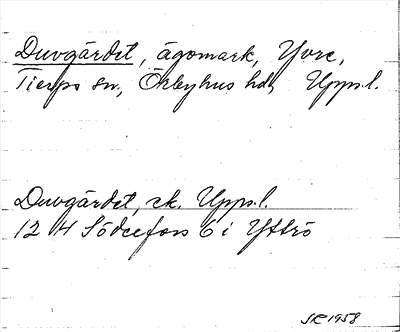 Duvgärdet, ägomark, Yvre,
Tierps sn, Örbyhus hd, Upps.l.
Duvgärdet, ek. Upps.l.
12 H Söderfors 6 i Yttrö
SR 1958